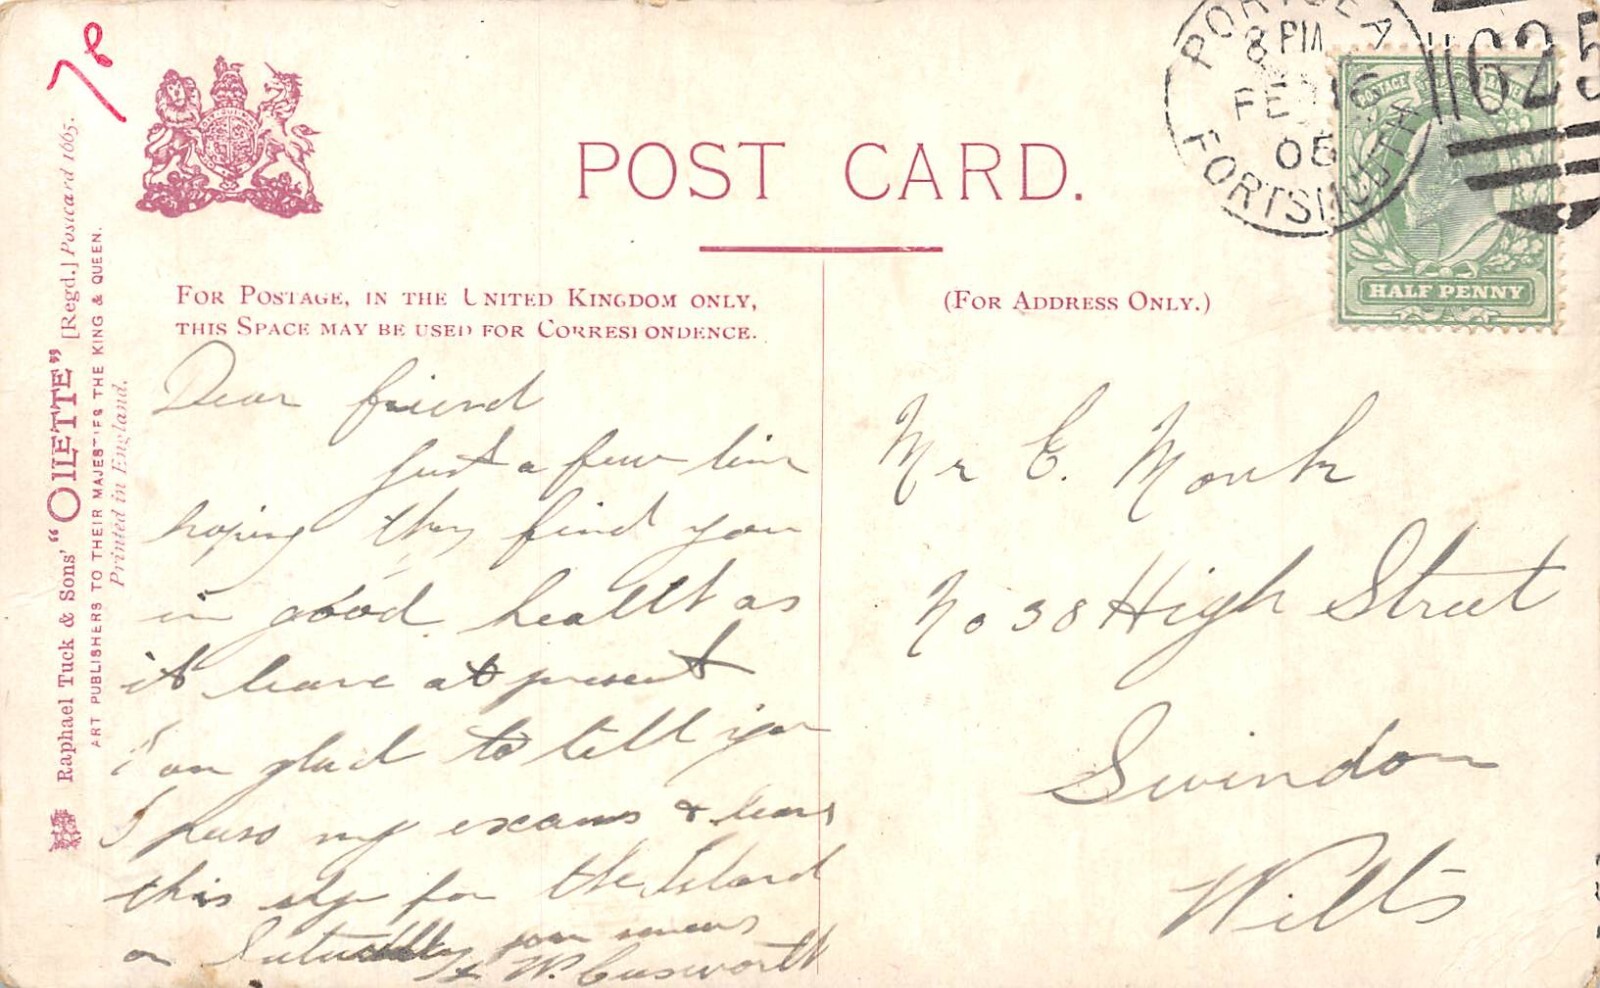 7p
POST CARD.
FOR POSTAGE, IN THE UNITED KINGDOM ONLY,
THIS SPACE MAY BE USED FOR CORRESPONDENCE.
(FOR ADDRESS ONLY.)
Raphael Tuck & Sons' "OILETTE" [Regd.] Postcard 1665.
ART PUBLISHERS TO THEIR MAJESTIES THE KING & QUEEN.
Printed in England.
PORTSEA
8 PM
FE 16
PORTSMOUTH
625
POSTAGE
HALF PENNY
Dear friend
Just a few line
hoping they find you
in good health as
it leave at present
I am glad to tell you
I pass my exams & leave
this for the Island
on
W. Cusworth
Mr E. Monk
No 38 High Street
Swindon
Wilts